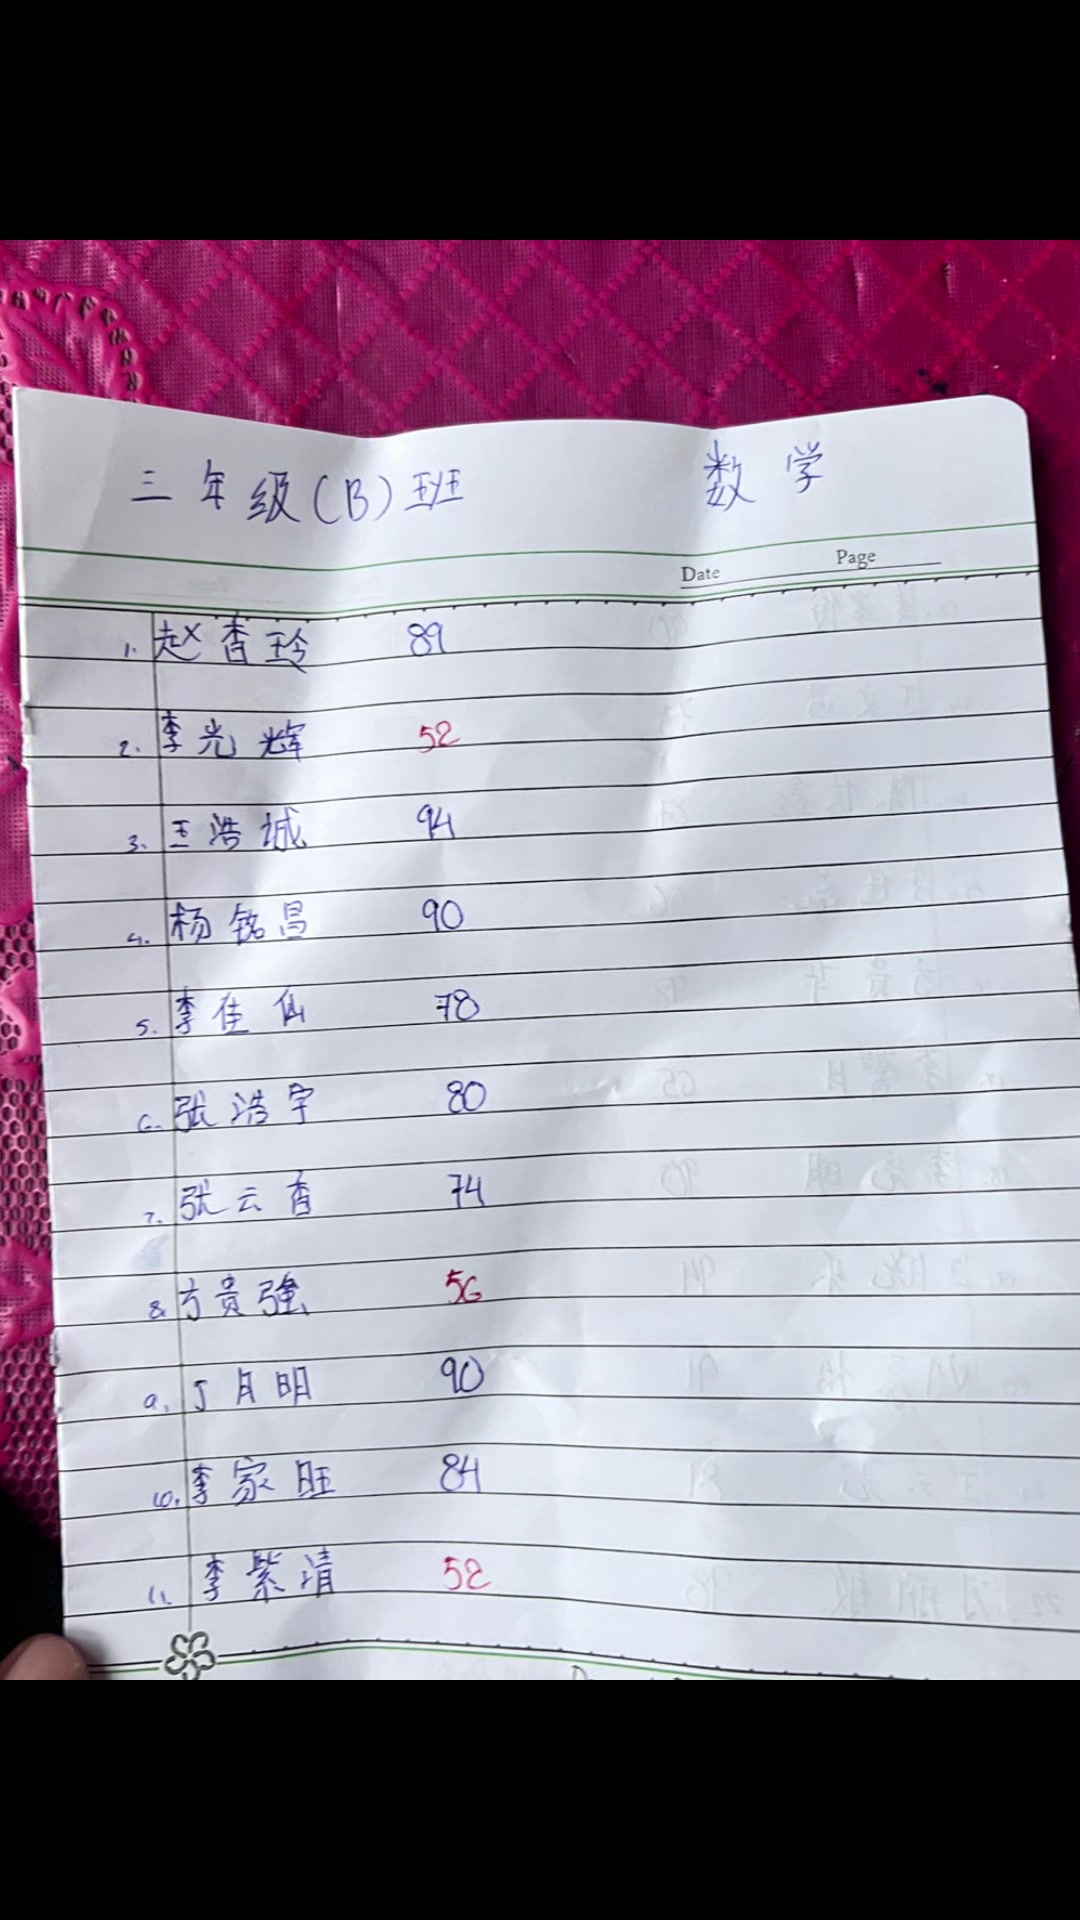 三年级(B)班 数学
Date Page
1. 赵香玲 89
2. 李光辉 52
3. 王浩诚 94
4. 杨铭昌 90
5. 李佳仙 78
6. 张浩宇 80
7. 张云香 74
8. 方贵強 56
9. 丁月明 90
10. 李家旺 84
11. 李紫清 52